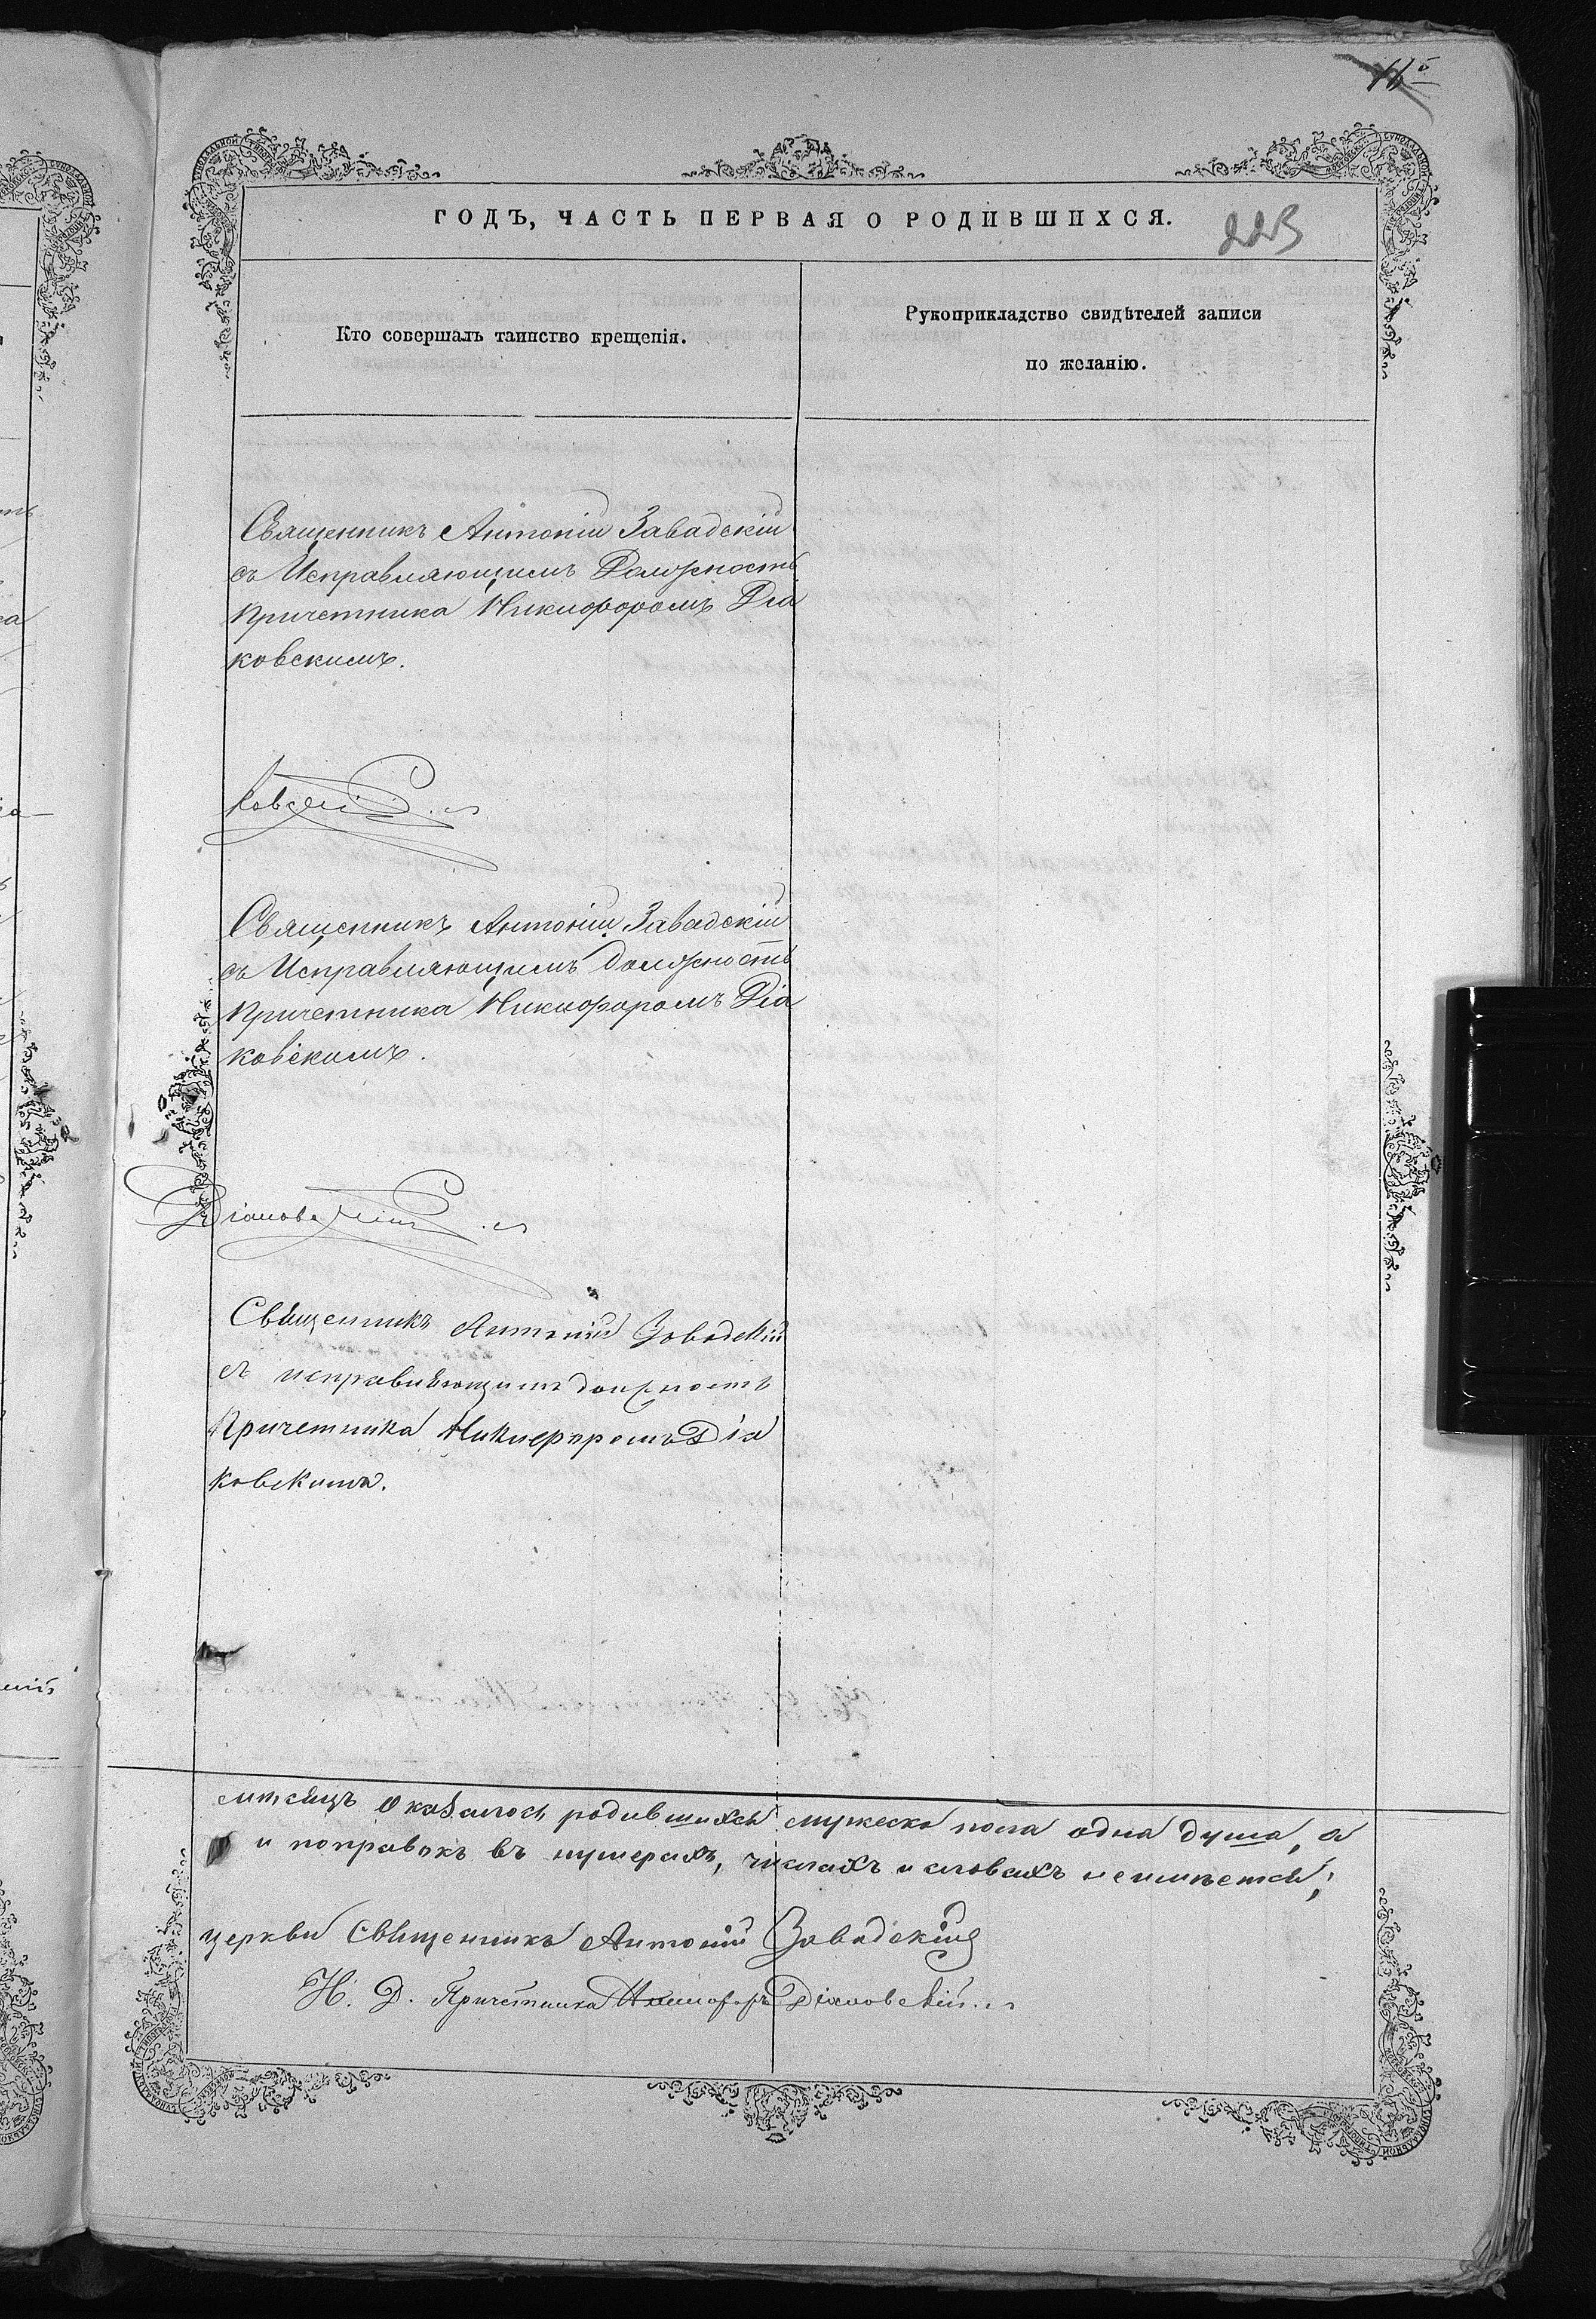 223
ГОДЪ, ЧАСТЬ ПЕРВАЯ О РОДИВШИХСЯ.
Кто совершалъ таинство крещенія.
Рукоприкладство свидѣтелей записи
по желанію.
Священникъ Антоній Завадскій
съ Исправляющимъ Должность
Причетника Никифоромъ Діа
ковскимъ.
Священникъ Антоній Завадскій
съ Исправляющимъ должность
Причетника Никифоромъ Діа
ковскимъ.
Діаковскій
Священникъ Антоній Завадскій
съ исправляющимъ должность
Причетника Никифоромъ Діа
ковскимъ.
оказалось родившихся мужеска пола одна душа, а
и поправокъ въ нумерахъ, числахъ и словахъ неимѣется;
церкви Священникъ Антоній Завадскій
И. Д. Причетника Никифоръ Діаковскій